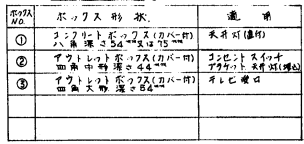 ボックス NO.
ボックス形状.
適用
① コンクリートボックス(カバー付) 八角深さ54mm又は75mm
天井灯(直付)
② アウトレットボックス(カバー付) 四角中形深さ44mm
コンセント スイッチ ブラケット 天井灯(埋込)
③ アウトレットボックス(カバー付) 四角大形深さ54mm
テレビ端口